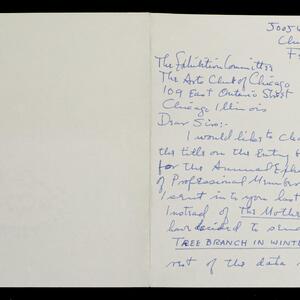 5005
The Exhibition Committee
The Arts Club of Chicago
109 East Ontario Street
Chicago Illinois
Dear Sirs:-
I would like to
the title on the Entry
for the Annual
of Professional
I sent into you last
Instead of The Mother
have decided to send
TREE BRANCH IN WINT
rest of the data